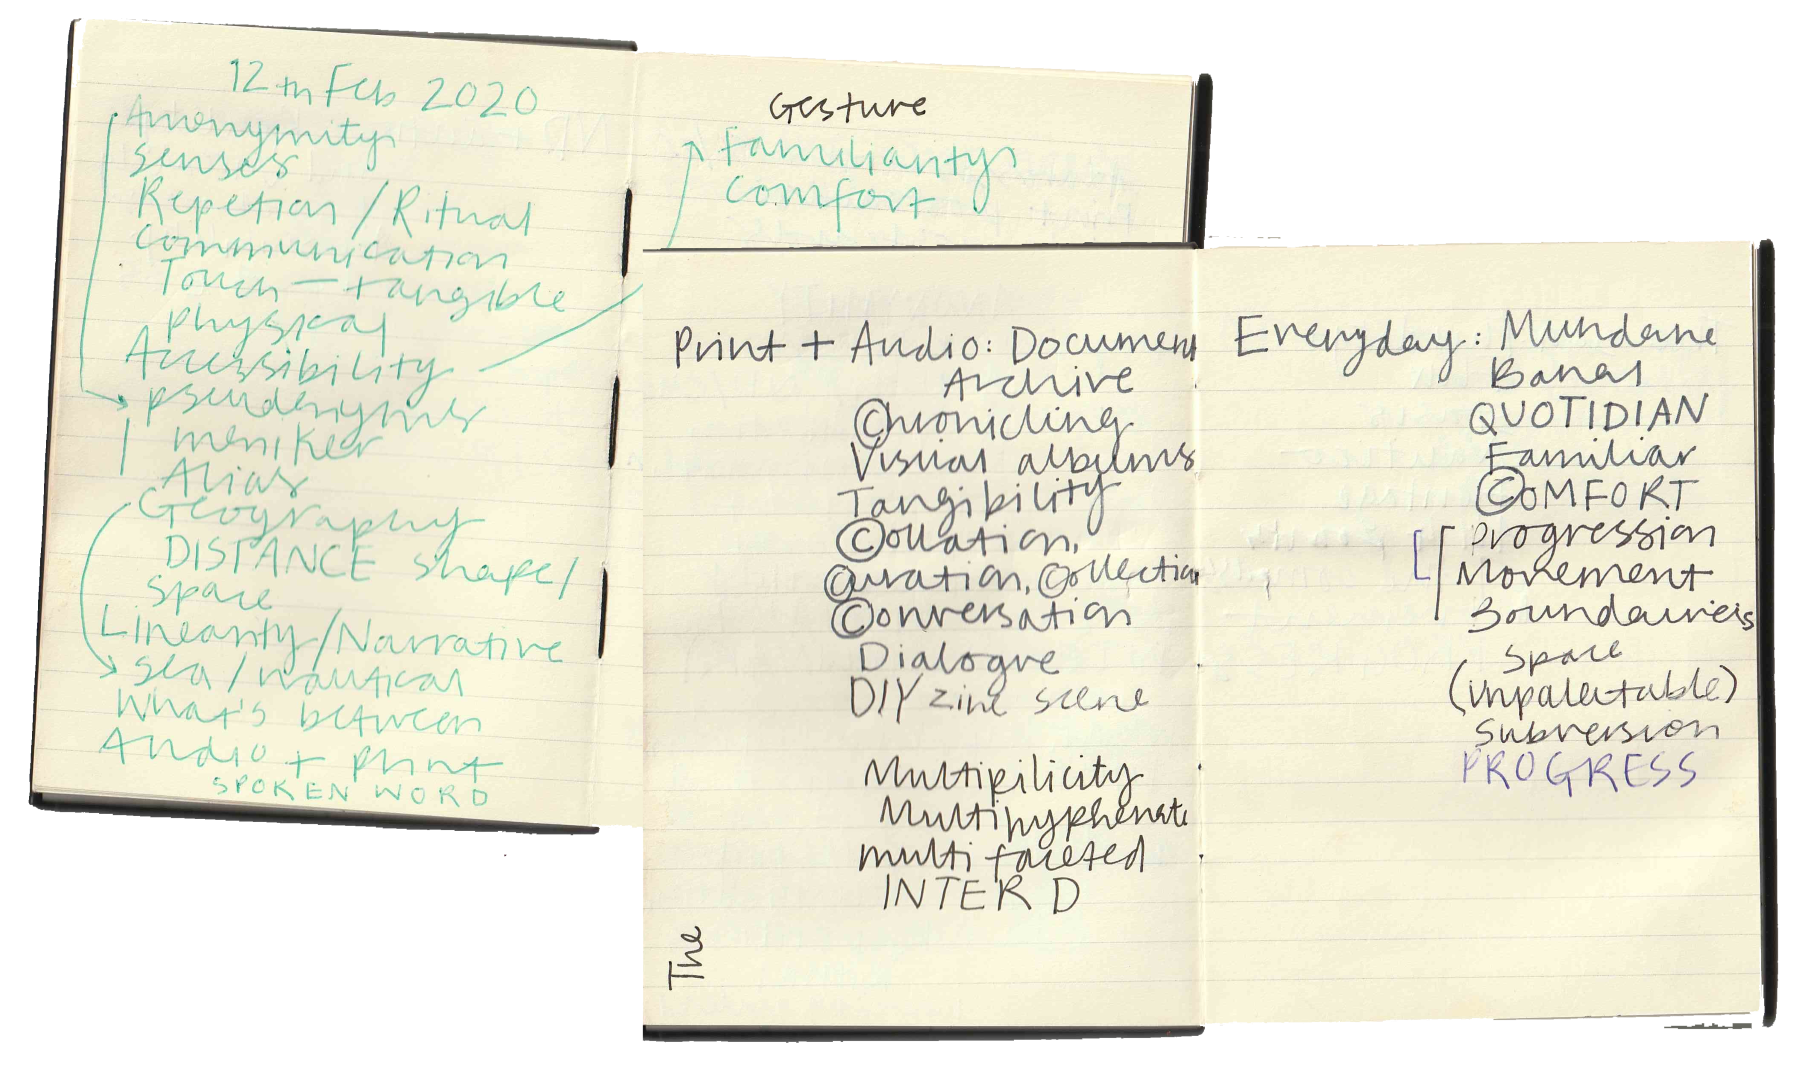 12th Feb 2020
Anonymity
senses
Repetion / Ritual
communication
Touch — tangible
physical
Accessibility
pseudonyms
moniker
Alias
Geography
DISTANCE shape/
space
Linearity/Narrative
sea/nautical
What's between
Audio + print
SPOKEN WORD
Gesture
Familiarity
comfort
Print + Audio: Document
Archive
©hronicling
Visual albums
Tangibility
©ollation,
©uration, ©ollection
©onversation
Dialogue
DIY zine scene
Multiplicity
Multihyphenate
multi faceted
INTER D
The
Everyday: Mundane
Banal
QUOTIDIAN
Familiar
©OMFORT
Progression
Movement
Boundaries
space
(unpaletable)
subversion
PROGRESS